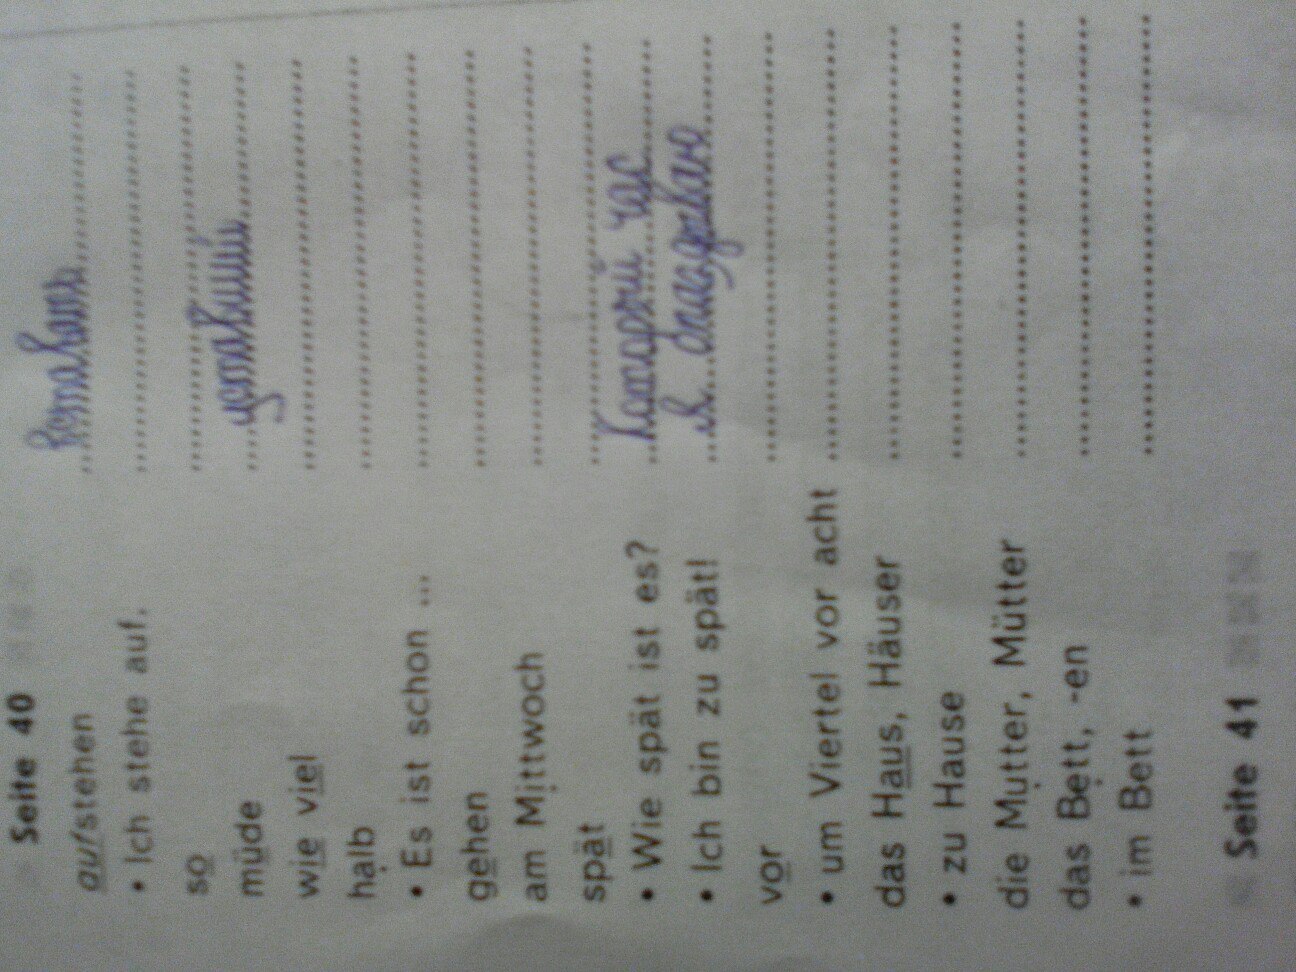 Seite 40
aufstehen вставать
• Ich stehe auf.
so
müde уставший
wie viel
halb
• Es ist schon ...
gehen
am Mittwoch
spät
• Wie spät ist es? Который час
• Ich bin zu spät! Я опаздываю
vor
• um Viertel vor acht
das Haus, Häuser
• zu Hause
die Mutter, Mütter
das Bett, -en
• im Bett
Seite 41